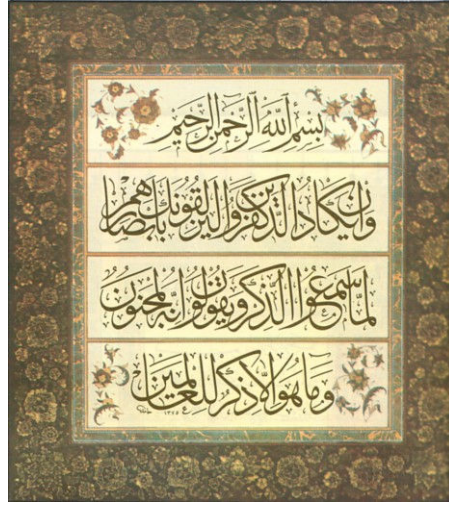 بِسْمِ اللَّهِ الرَّحْمٰنِ الرَّحِيمِ
وَإِنْ يَكَادُ الَّذِينَ كَفَرُوا لَيُزْلِقُونَكَ بِأَبْصَارِهِمْ
لَمَّا سَمِعُوا الذِّكْرَ وَيَقُولُونَ إِنَّهُ لَمَجْنُونٌ
وَمَا هُوَ إِلَّا ذِكْرٌ لِلْعَالَمِينَ